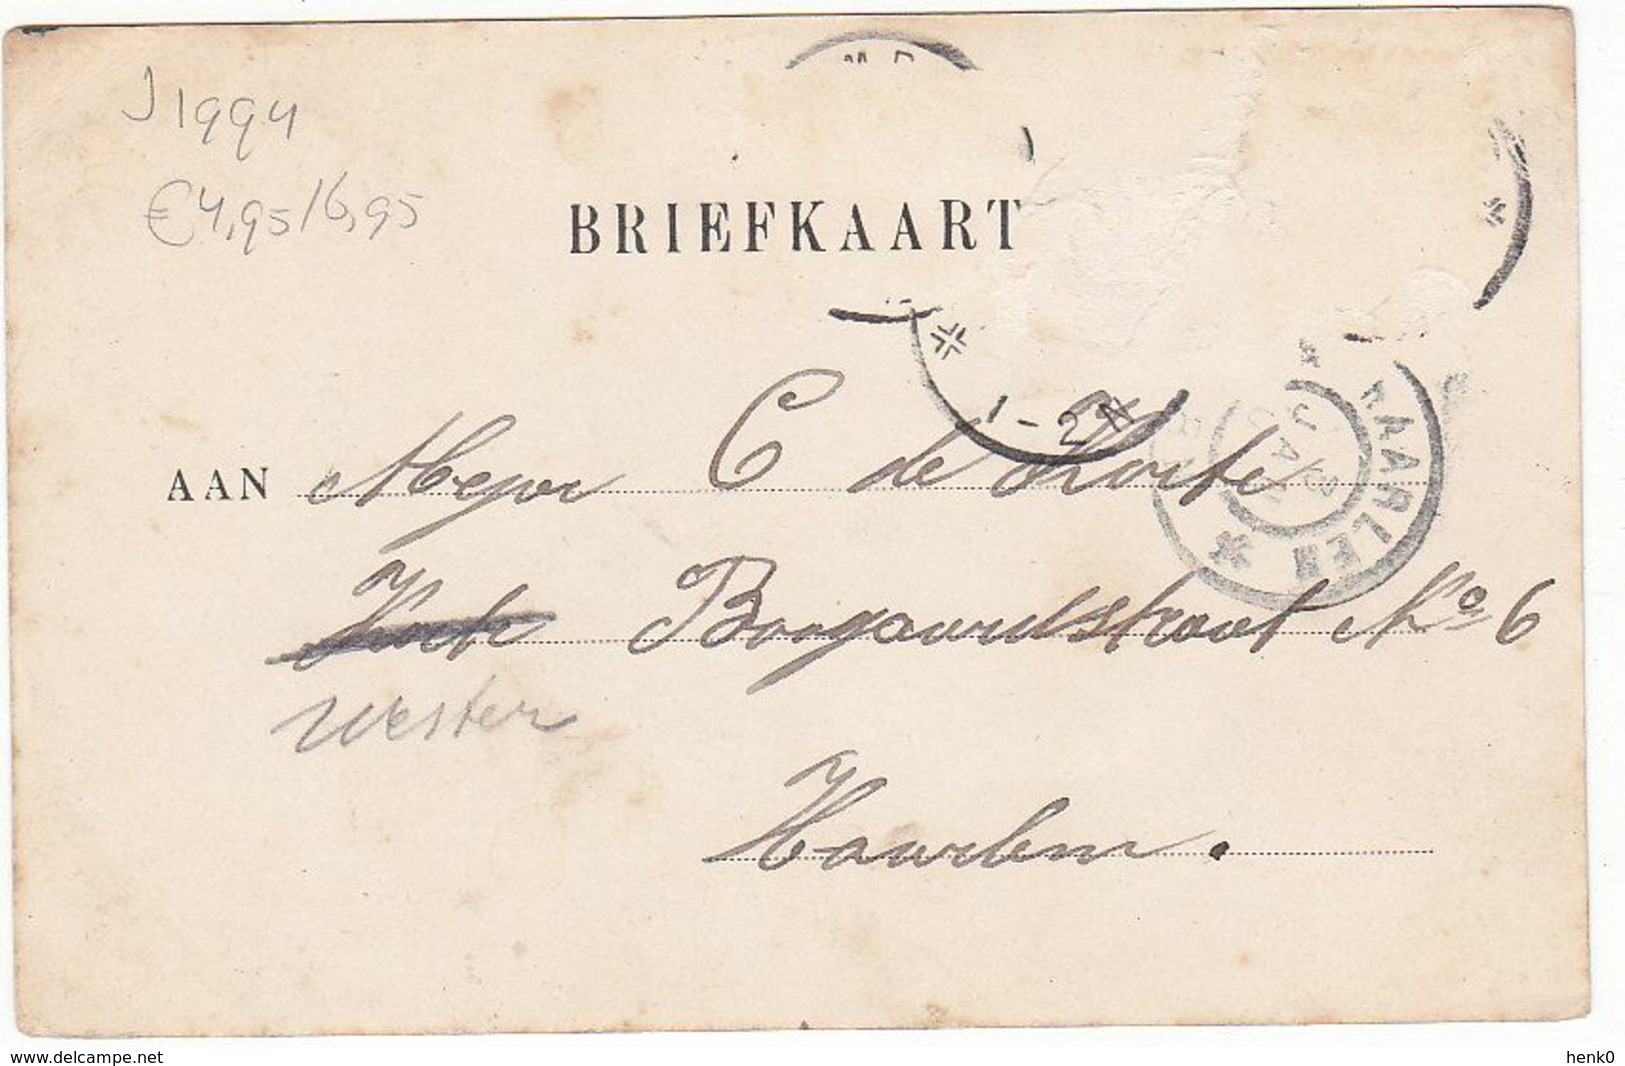 J1994
€4,95/6,95
BRIEFKAART
1-2N
HAARLEM
AAN Mejor C de Korte
Bongaardstraat No 6
Wester
Haarlem.
www.delcampe.net
henk0